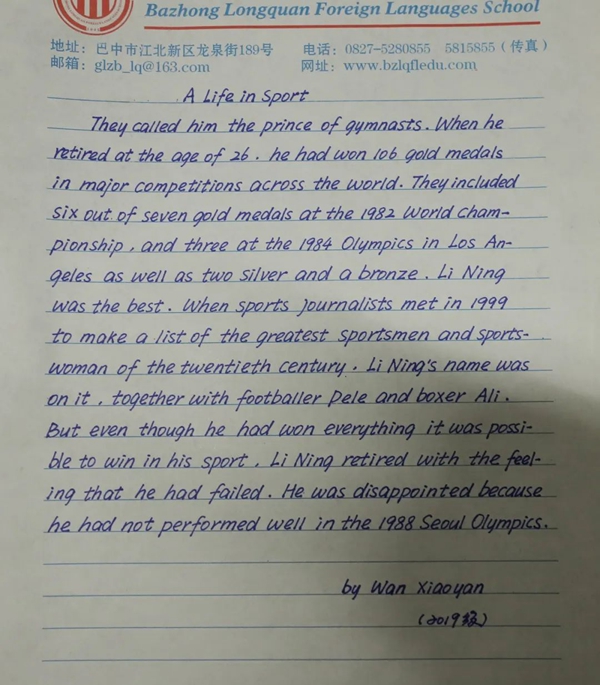 Bazhong Longquan Foreign Languages School
地址：巴中市江北新区龙泉街189号 电话：0827-5280855 5815855（传真）
邮箱：glzb_lq@163.com 网址：www.bzlqfledu.com
A Life in Sport
They called him the prince of gymnasts. When he
retired at the age of 26. he had won 106 gold medals
in major competitions across the world. They included
six out of seven gold medals at the 1982 World cham-
pionship, and three at the 1984 Olympics in Los An-
geles as well as two silver and a bronze. Li Ning
was the best. When sports journalists met in 1999
to make a list of the greatest sportsmen and sports-
woman of the twentieth century. Li Ning's name was
on it, together with footballer Pele and boxer Ali.
But even though he had won everything it was possi-
ble to win in his sport. Li Ning retired with the feel-
ing that he had failed. He was disappointed because
he had not performed well in the 1988 Seoul Olympics.
by Wan Xiaoyan
(2019级)